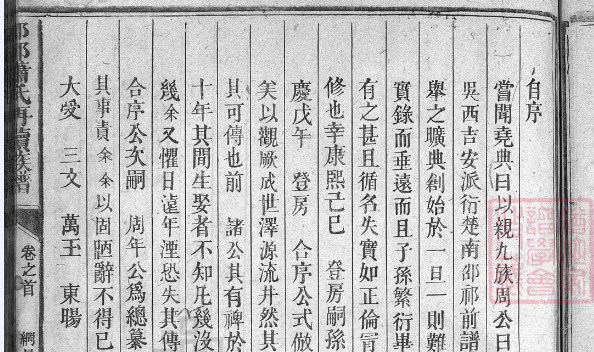 自序
嘗聞堯典曰以親九族周公曰
吳西吉安派衍楚南邵祁前譜
舉之曠典創始於一旦一則難
實錄而垂遠而且子孫繁衍畢
有之甚且循名失實如正倫
修也幸康熙己巳 登房嗣孫
慶戊午 登房 合序公式倣
矣以觀厥成世澤源流井然其
其可傳也前 諸公其有裨於
十年其間生娶者不知凡幾沒
幾余又懼日遠年湮恐失其傳
合序公次嗣 周年公爲總纂
其事責余余以固陋辭不得已
大受 三文 萬玉 東暘
蕭氏再續族譜
卷之首